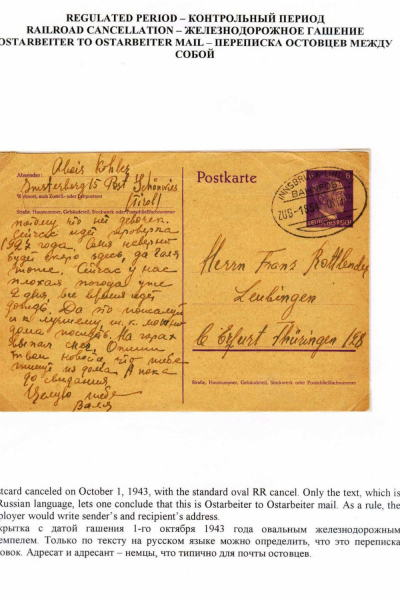 REGULATED PERIOD – КОНТРОЛЬНЫЙ ПЕРИОД
RAILROAD CANCELLATION – ЖЕЛЕЗНОДОРОЖНОЕ ГАШЕНИЕ
OSTARBEITER TO OSTARBEITER MAIL – ПЕРЕПИСКА ОСТОВЦЕВ МЕЖДУ
СОБОЙ
Absender: Alois Kohler
Imsterberg 15 Post Schönwies
Wohnort, auch Zustell- oder Leitpostamt
(Tirol)
Straße, Hausnummer, Gebäudeteil, Stockwerk oder Postschließfachnummer
потому что нет девочек.
Сейчас идёт проверка
1923 года.
будет скоро здесь, да Галя
тоже. Сейчас у нас
плохая погода уже
2 дня, все время идёт
дождь. Да это пожалуй
и к лучшему, т.к. можно
дома посидеть. На горах
выпал снег. Опиши
твои новости, что тебе
пишут из дома. А пока
до свидания
Целую тебя
Валя
Postkarte
INNSBRUCK
BAHNPOST
ZUG
DEUTSCHES REICH
6
Herrn Franz Rottländer
Leubingen
b Erfurt Thüringen 128
Straße, Hausnummer, Gebäudeteil, Stockwerk oder Postschließfachnummer
stcard canceled on October 1, 1943, with the standard oval RR cancel. Only the text, which is
Russian language, lets one conclude that this is Ostarbeiter to Ostarbeiter mail. As a rule, the
ployer would write sender's and recipient's address.
крытка с датой гашения 1-го октября 1943 года овальным железнодорожным
емпелем. Только по тексту на русском языке можно определить, что это переписка
овок. Адресат и адресант – немцы, что типично для почты остовцев.